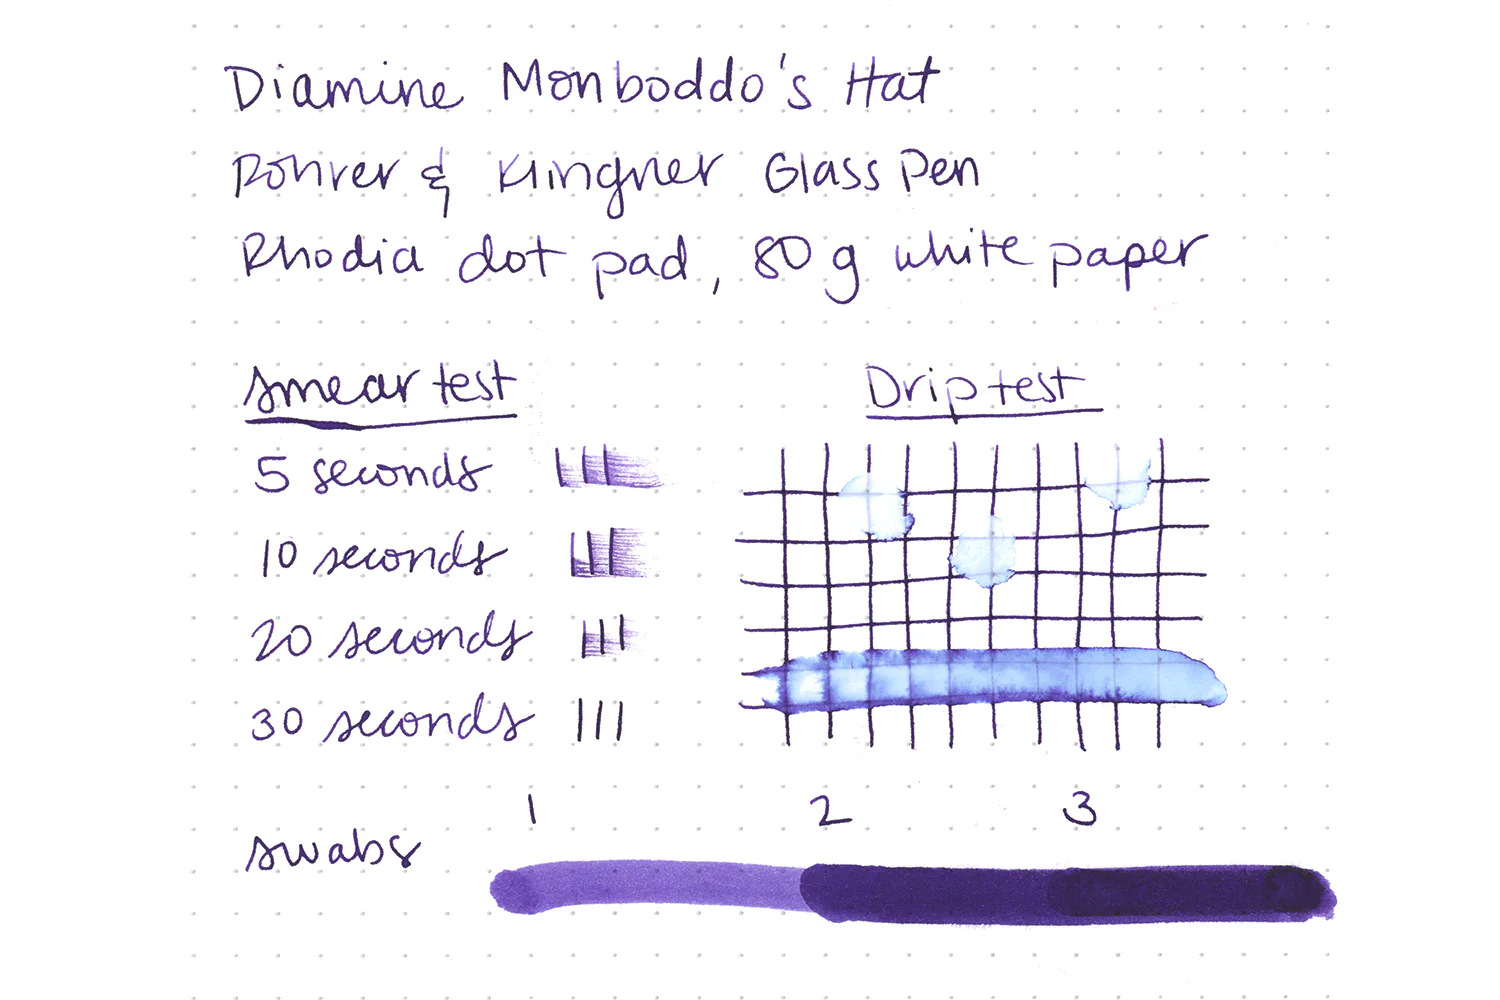 Diamine Monboddo's Hat
Rohrer & Klingner Glass Pen
Rhodia dot pad, 80 g white paper
smear test
Drip test
5 seconds
10 seconds
20 seconds
30 seconds
1 2 3
swabs